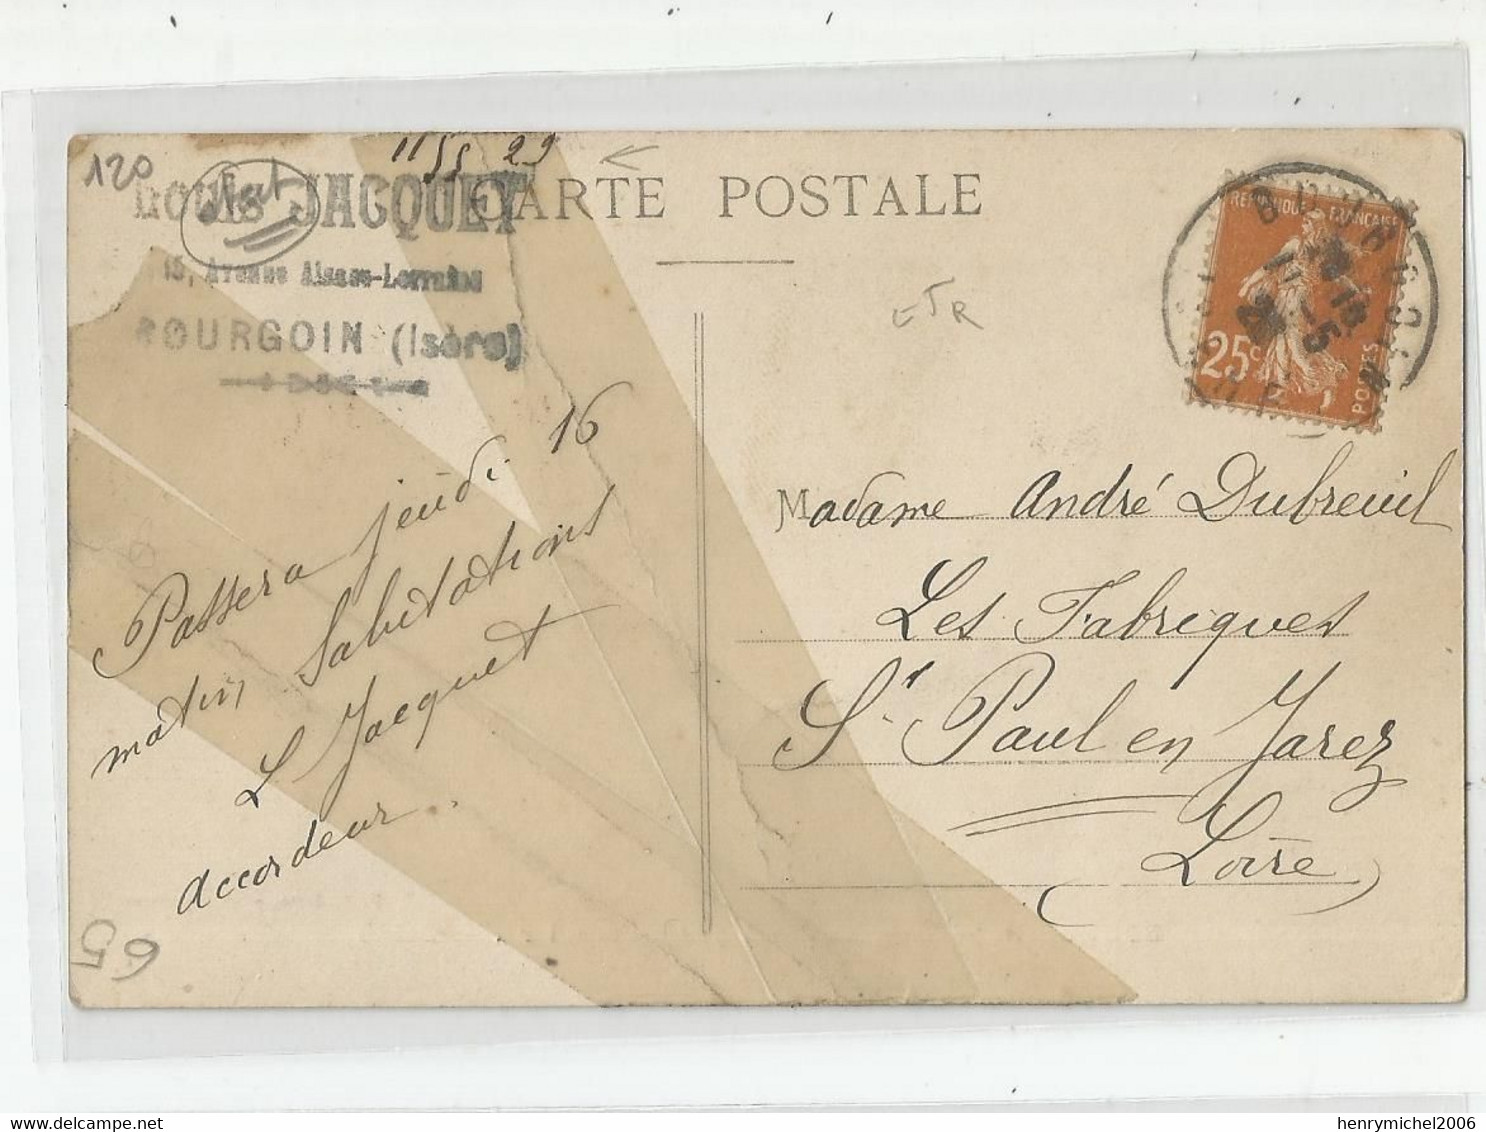 120
1155 29
Louis JACQUET
15, Avenue Alsace-Lorraine
BOURGOIN (Isère)
CARTE POSTALE
ETR
REPUBLIQUE FRANCAISE
25c
POSTES
BOURGOIN
Passera jeudi 16
matin Salutations
L Jacquet
accordeur.
65
Madame André Dubreuil
Les Fabriques
St Paul en Jarez
Loire
henrymichel2006